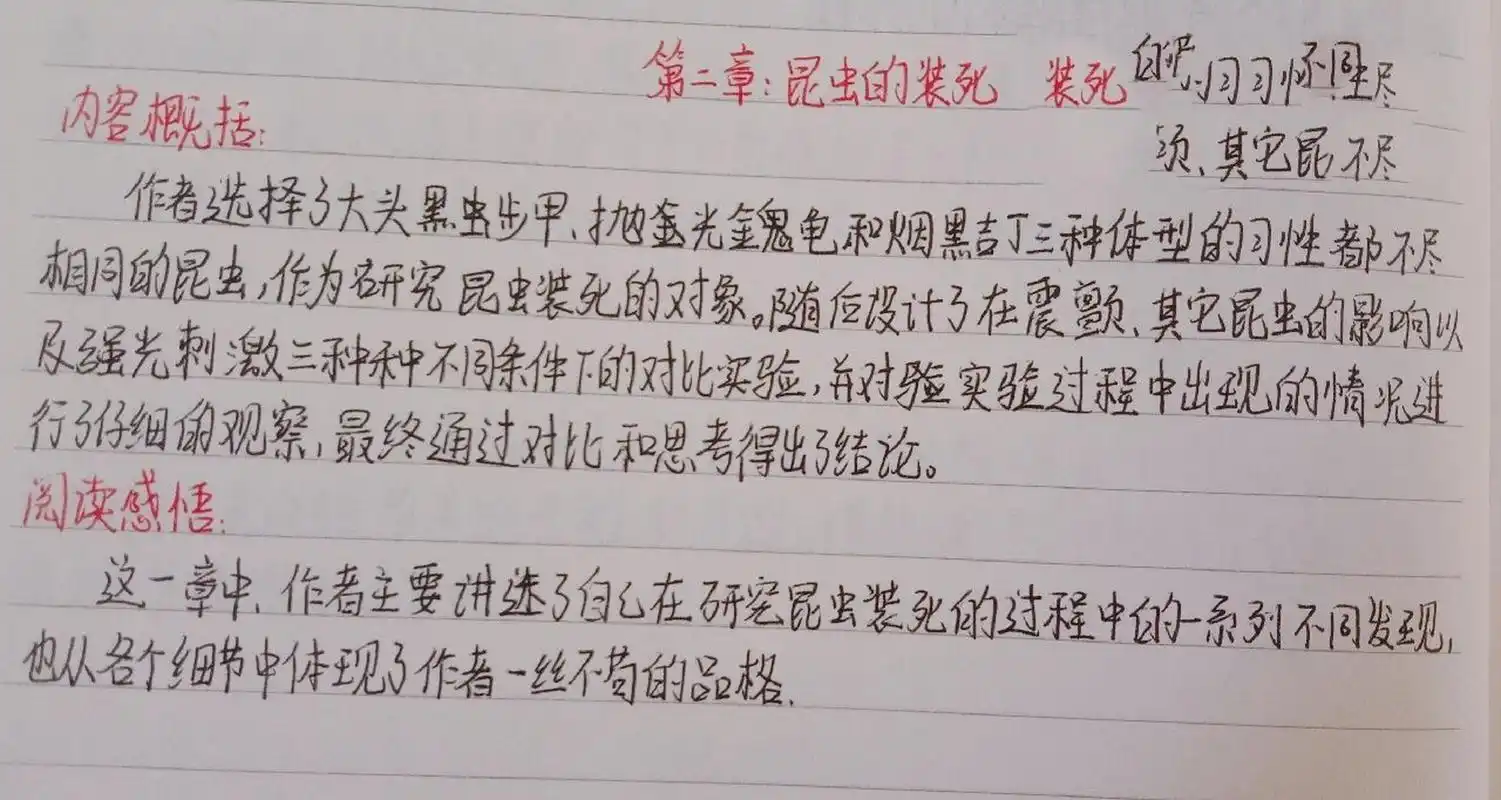 第二章:昆虫的装死 装死
须、其它昆不尽
内容概括:
作者选择了大头黑虫步甲、抛金光金龟和烟黑吉丁三种体型的习性都不尽
相同的昆虫,作为研究昆虫装死的对象。随后设计了在震颤、其它昆虫的影响以
及强光刺激三种种不同条件下的对比实验,并对验实验过程中出现的情况进
行了仔细的观察,最终通过对比和思考得出了结论。
阅读感悟:
这一章中、作者主要讲述了自己在研究昆虫装死的过程中的一系列不同发现,
也从各个细节中体现了作者一丝不苟的品格.